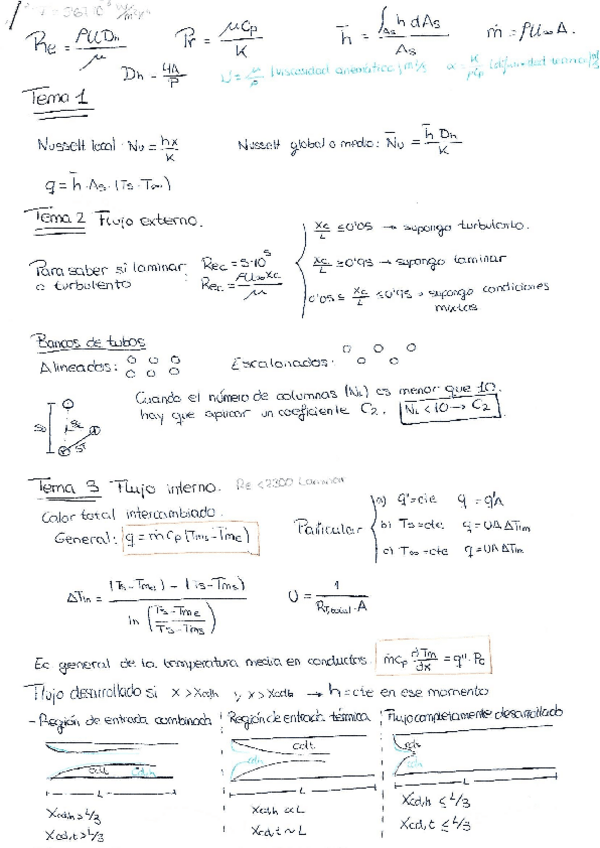 Re = ρU Dh / μ    Pr = μCp / K    h̄ = ∫As h dAs / As    ṁ = ρU∞ A.
Dh = 4A / P    ν = μ/ρ (viscosidad cinemática) m²/s
Tema 1
Nusselt local: Nu = hx / K    Nusselt global o medio: N̄u = h̄ Dh / K
q = h̄ · As · (Ts - T∞)
Tema 2 Flujo externo.
Para saber si laminar o turbulento    Rec = 5·10⁵    Rec = ρU∞ Xc / μ
Xc/L ≤ 0'05 → supongo turbulento.
Xc/L ≥ 0'95 → supongo laminar
0'05 ≤ Xc/L ≤ 0'95 → supongo condiciones mixtas
Bancos de tubos
Alineados:    Escalonados:
Cuando el número de columnas (NL) es menor que 10.
hay que aplicar un coeficiente C2.    NL < 10 → C2
SD    SL    ST
Tema 3 Flujo interno. Re < 2300 Laminar
Calor total intercambiado.
General: q = ṁ cp (Tms - Tme)
Particular
a) q'' = cte    q = q''A
b) Ts = cte    q = UA ΔTlm
c) T∞ = cte    q = UA ΔTlm
ΔTlm = (Ts - Tme) - (Ts - Tms) / ln (Ts - Tme / Ts - Tms)    U = 1 / RT,total · A
Ec general de la temperatura media en conductos. ṁcp dTm/dx = q'' · Pc
Flujo desarrollado si x > Xcdh y x > Xcdth → h = cte en ese momento
- Región de entrada combinada    Región de entrada térmica    Flujo completamente desarrollado
cd,t    cd,h    cdh    cd.t.    cdh    cdt
L    L    L
Xcd,h > L/3    Xcd,h << L    Xcd,h ≤ L/3
Xcd,t > L/3    Xcd,t ~ L    Xcd,t ≤ L/3